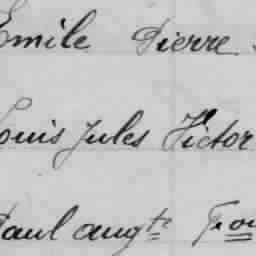 Emile Pierre
Louis Jules Victor
Paul augte